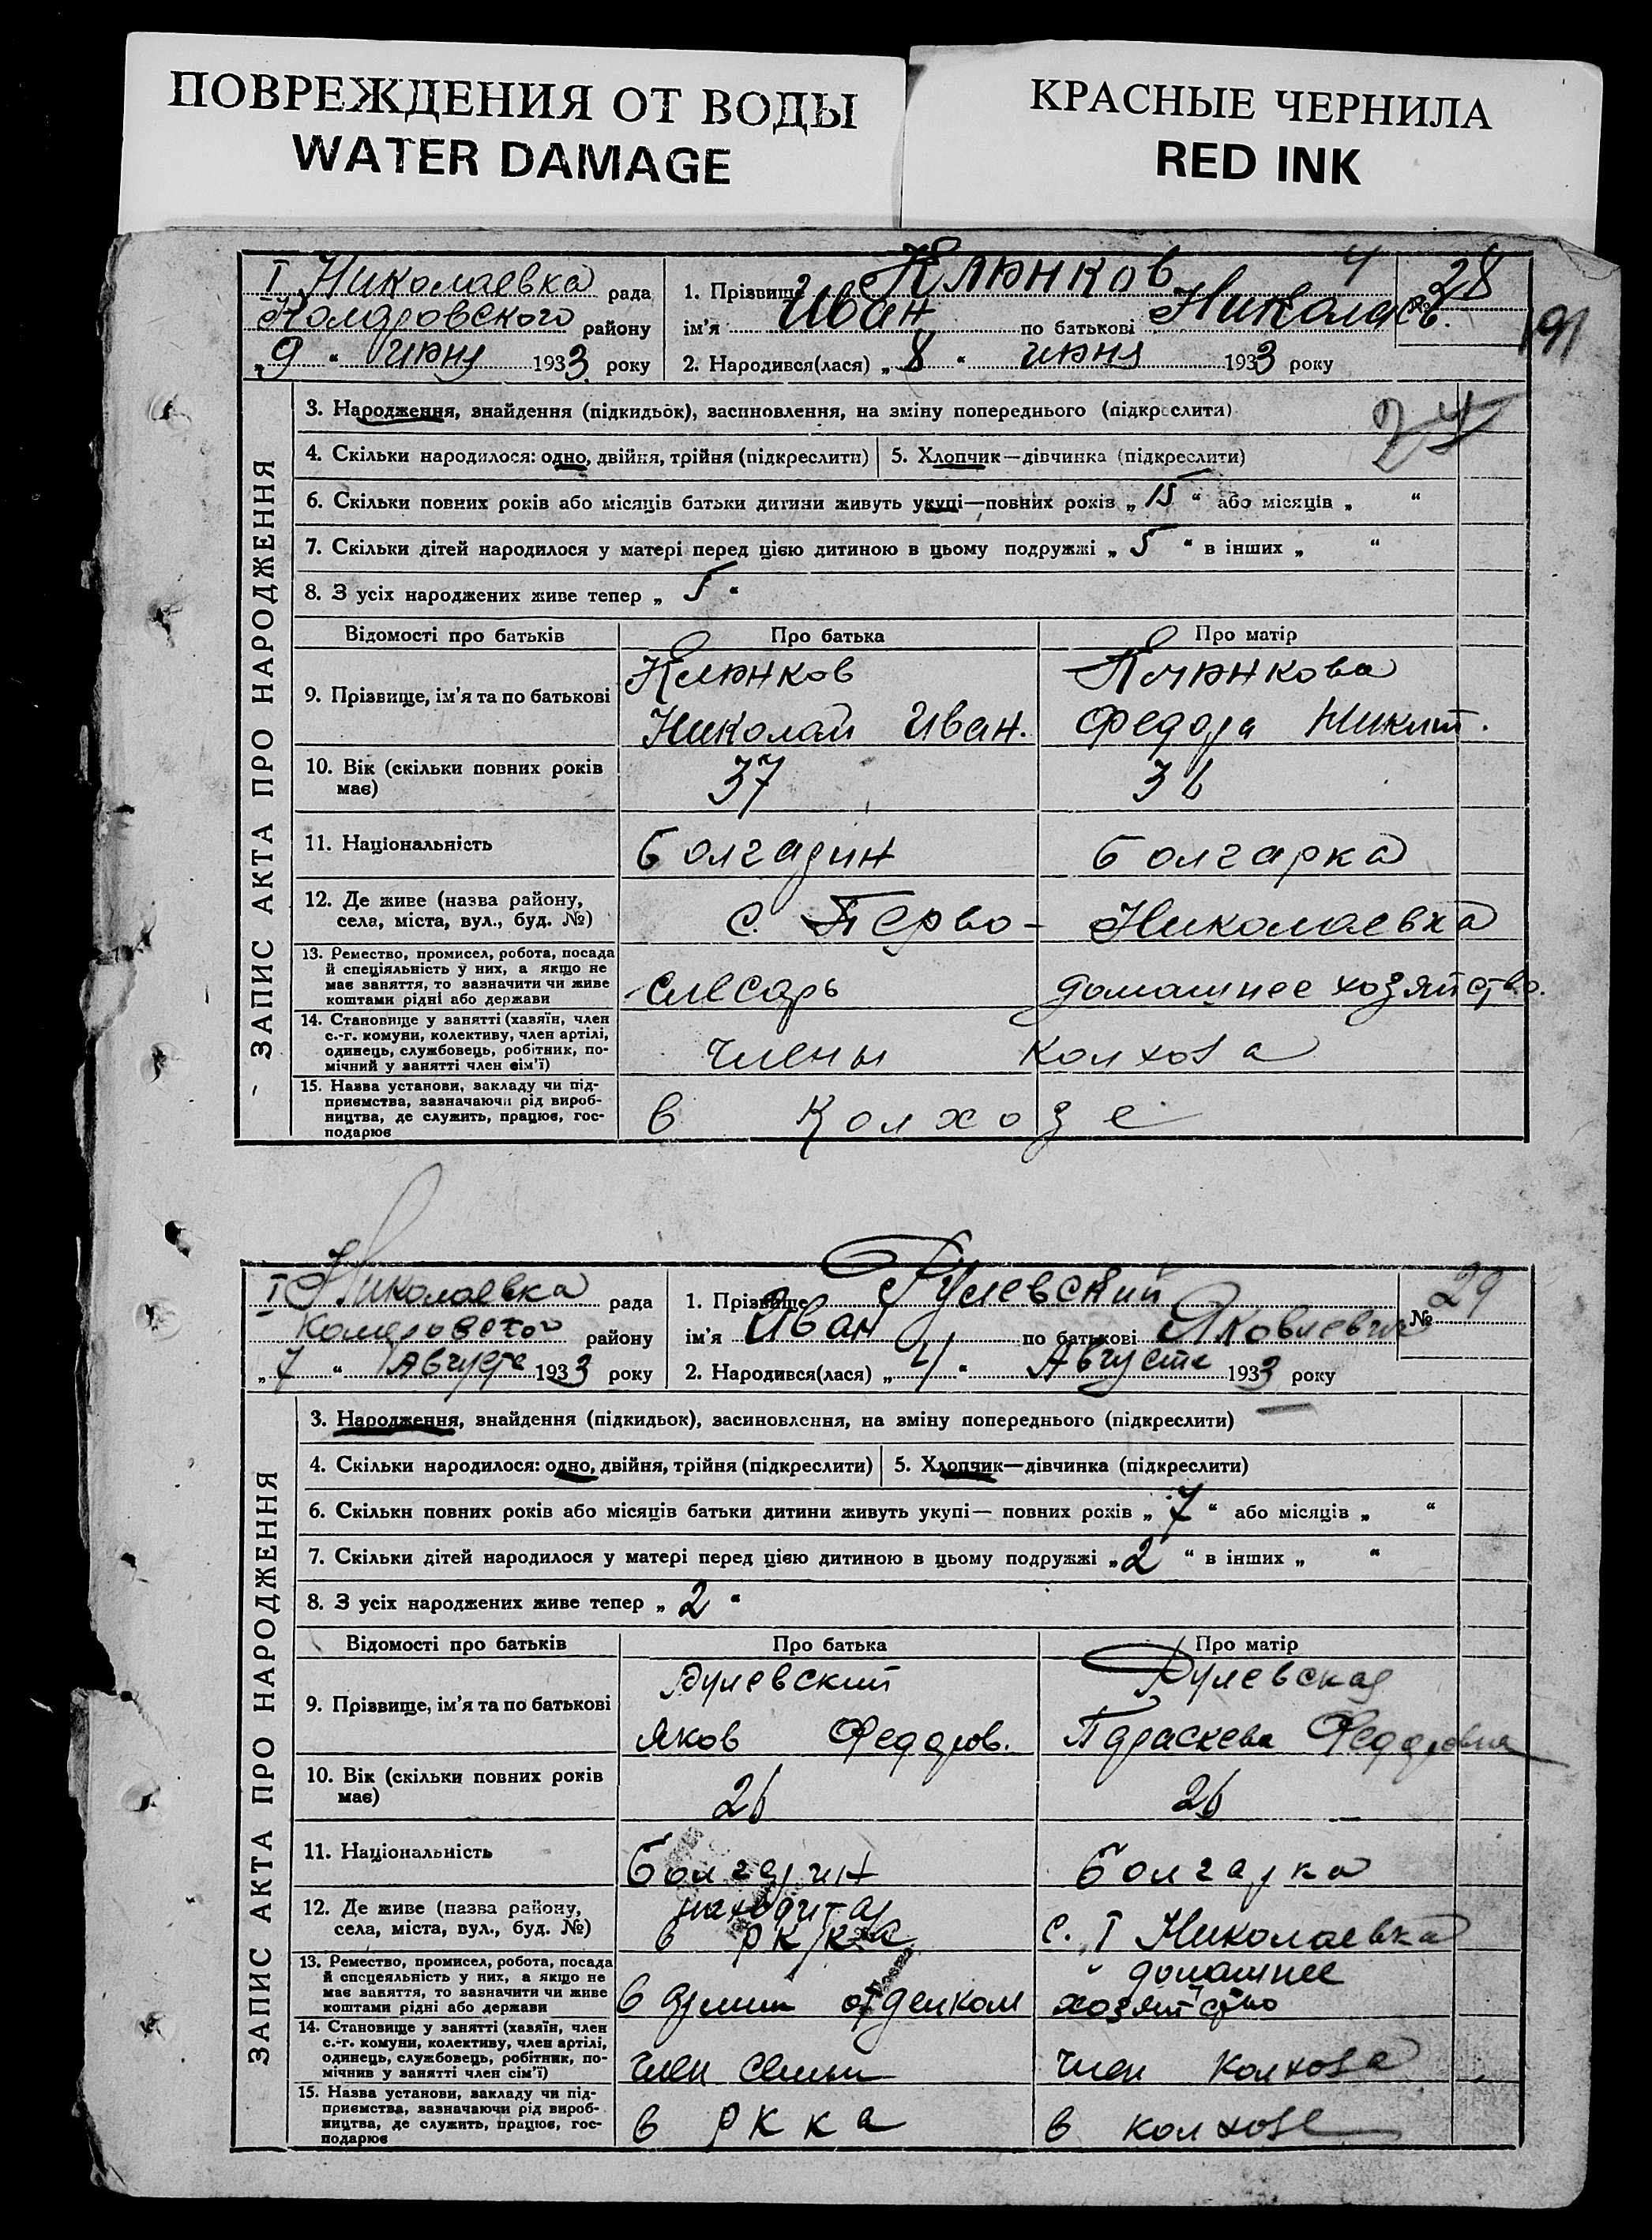 ПОВРЕЖДЕНИЯ ОТ ВОДЫ
WATER DAMAGE
КРАСНЫЕ ЧЕРНИЛА
RED INK
І Николаевка рада
Коларовского району
„9 “ июня 1933 року
1. Прізвище Клюнков
ім'я Иван по батькові Николаев.
2. Народився(лася) „8 “ июня 1933 року
4
№ 28
191
74
ЗАПИС АКТА ПРО НАРОДЖЕННЯ
3. Народження, знайдення (підкидьок), засиновлення, на зміну попереднього (підкреслити)
4. Скільки народилося: одно, двійня, трійня (підкреслити)
5. Хлопчик—дівчинка (підкреслити)
6. Скільки повних років або місяців батьки дитини живуть укупі—повних років „ 15 “ або місяців „ “
7. Скільки дітей народилося у матері перед цією дитиною в цьому подружжі „ 5 “ в інших „ “
8. З усіх народжених живе тепер „ 5 “
Відомості про батьків Про батька Про матір
9. Прізвище, ім'я та по батькові
Клюнков
Николай Иван.
Клюнкова
Федора Никит.
10. Вік (скільки повних років
має)
37
36
11. Національність
Болгарин
Болгарка
12. Де живе (назва району,
села, міста, вул., буд. №)
с. Перво- Николаевка
13. Ремество, промисел, робота, посада
й спеціяльність у них, а якщо не
має заняття, то зазначити чи живе
коштами рідні або держави
слесарь
домашнее хозяйство.
14. Становище у занятті (хазяїн, член
с.-г. комуни, колективу, член артілі,
одинець, службовець, робітник, по-
мічний у занятті член сім'ї)
Члены колхоза
15. Назва установи, закладу чи під-
приємства, зазначаючи рід вироб-
ництва, де служить, працює, гос-
подарює
в Колхозе
І Николаевка рада
Коларовского району
„7 “ Августа 1933 року
1. Прізвище Гулевский
ім'я Иван по батькові Яковлевич
2. Народився(лася) „4 “ Августа 1933 року
№ 29
ЗАПИС АКТА ПРО НАРОДЖЕННЯ
3. Народження, знайдення (підкидьок), засиновлення, на зміну попереднього (підкреслити)
4. Скільки народилося: одно, двійня, трійня (підкреслити)
5. Хлопчик—дівчинка (підкреслити)
6. Скільки повних років або місяців батьки дитини живуть укупі— повних років „ 7 “ або місяців „ “
7. Скільки дітей народилося у матері перед цією дитиною в цьому подружжі „2 “ в інших „ “
8. З усіх народжених живе тепер „ 2 “
Відомості про батьків Про батька Про матір
9. Прізвище, ім'я та по батькові
Гулевский
Яков Федоров.
Гулевская
Параскева Федоровна
10. Вік (скільки повних років
має)
26
26
11. Національність
Болгарин
Болгарка
12. Де живе (назва району,
села, міста, вул., буд. №)
находится
в РККА
с. І Николаевка
13. Ремество, промисел, робота, посада
й спецеяльність у них, а якщо не
має заняття, то зазначити чи живе
коштами рідні або держави
в армии отделком
домашнее
хозяйство
14. Становище у занятті (хазяїн, член
с.-г. комуни, колективу, член артілі,
одинець, службовець, робітник, по-
мічнив у занятті член сім'ї)
член семьи
член колхоза
15. Назва установи, закладу чи під-
приємства, зазначаючи рід вироб-
ництва, де служить, працює, гос-
подарює
в РККА
в колхозе